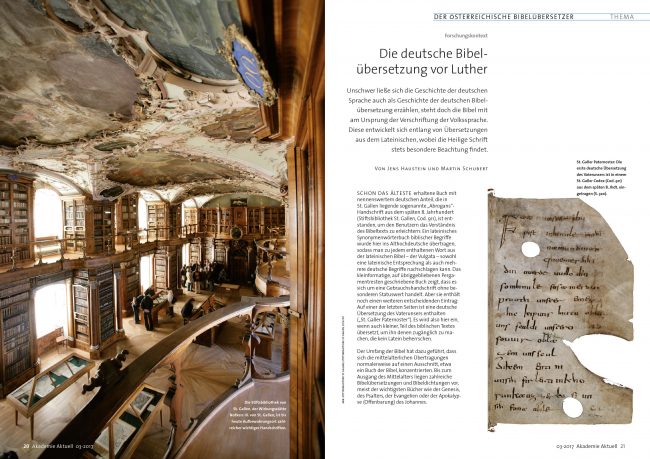 DER ÖSTERREICHISCHE BIBELÜBERSETZER THEMA
Forschungskontext
Die deutsche Bibel-
übersetzung vor Luther
Unschwer ließe sich die Geschichte der deutschen
Sprache auch als Geschichte der deutschen Bibel-
übersetzung erzählen, steht doch die Bibel mit
am Ursprung der Verschriftung der Volkssprache.
Diese entwickelt sich entlang von Übersetzungen
aus dem Lateinischen, wobei die Heilige Schrift
stets besondere Beachtung findet.
Von Jens Haustein und Martin Schubert
SCHON DAS ÄLTESTE erhaltene Buch mit
nennenswertem deutschen Anteil, die in
St. Gallen liegende sogenannte „Abrogans“-
Handschrift aus dem späten 8. Jahrhundert
(Stiftsbibliothek St. Gallen, Cod. 911), ist ent-
standen, um den Benutzern das Verständnis
des Bibeltexts zu erleichtern. Ein lateinisches
Synonymenwörterbuch biblischer Begriffe
wurde hier ins Althochdeutsche übertragen,
sodass man zu jedem enthaltenen Wort aus
der lateinischen Bibel – der Vulgata – sowohl
eine lateinische Entsprechung als auch meh-
rere deutsche Begriffe nachschlagen kann. Das
kleinformatige, auf übriggebliebenen Perga-
mentresten geschriebene Buch zeigt, dass es
sich um eine Gebrauchshandschrift ohne be-
sonderen Statuswert handelt. Aber sie enthält
noch einen weiteren entscheidenden Eintrag:
Auf einer der letzten Seiten ist eine deutsche
Übersetzung des Vaterunsers enthalten
(„St. Galler Paternoster“). Es wird also hier ein,
wenn auch kleiner, Teil des biblischen Textes
übersetzt, um ihn denen zugänglich zu ma-
chen, die kein Latein beherrschen.
Der Umfang der Bibel hat dazu geführt, dass
sich die mittelalterlichen Übertragungen
normalerweise auf einen Ausschnitt, etwa
ein Buch der Bibel, konzentrierten. Bis zum
Ausgang des Mittelalters liegen zahlreiche
Bibelübersetzungen und Bibeldichtungen vor,
meist der wichtigsten Bücher wie der Genesis,
des Psalters, der Evangelien oder der Apokalyp-
se (Offenbarung) des Johannes.
St. Galler Paternoster: Die
erste deutsche Übersetzung
des Vaterunsers ist in einem
St. Galler Codex (Cod. 911)
aus dem späten 8. Jhdt. ein-
getragen (S. 320).
Die Stiftsbibliothek von
St. Gallen, der Wirkungsstätte
Notkers III. von St. Gallen, ist bis
heute Aufbewahrungsort zahl-
reicher wichtiger Handschriften.
20 Akademie Aktuell 03-2017
03-2017 Akademie Aktuell 21